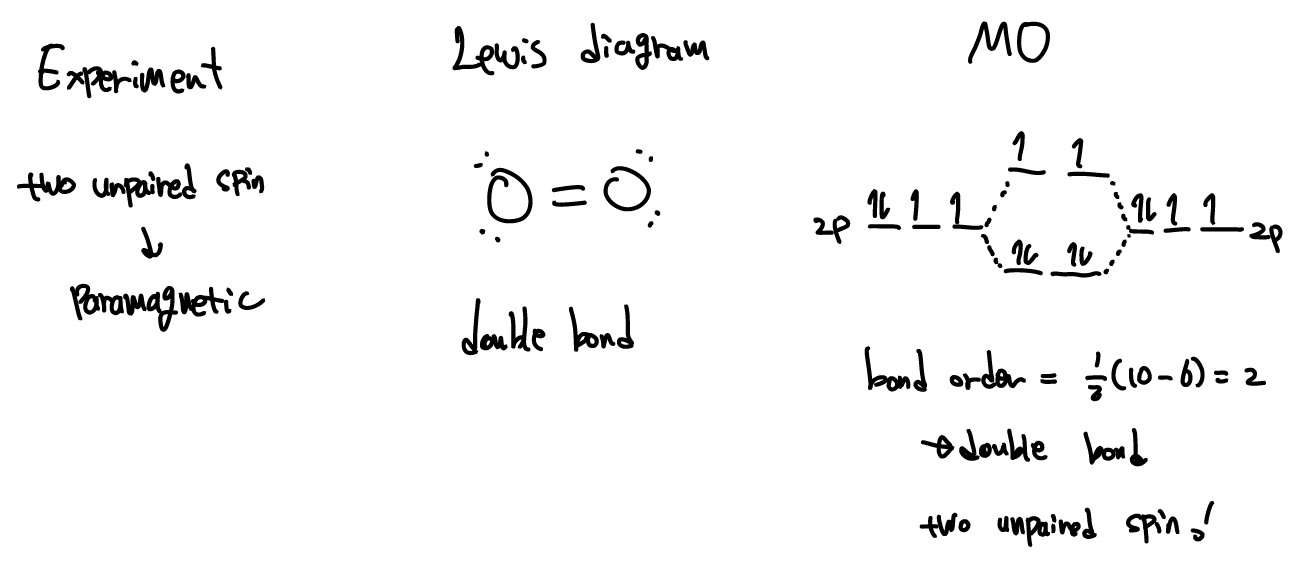 Experiment
two unpaired spin
↓
paramagnetic
Lewis diagram
O = O
double bond
MO
1 1
2p 1l 1 1 1l 1 1 2p
1l 1l
bond order = 1/2 (10 - 6) = 2
→ double bond
two unpaired spin!